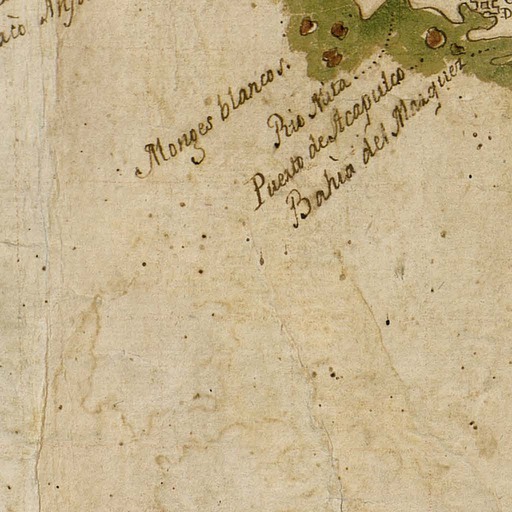 Monges blancos.
Rio Nata
Puerto de Acapulco
Bahia del Marquez